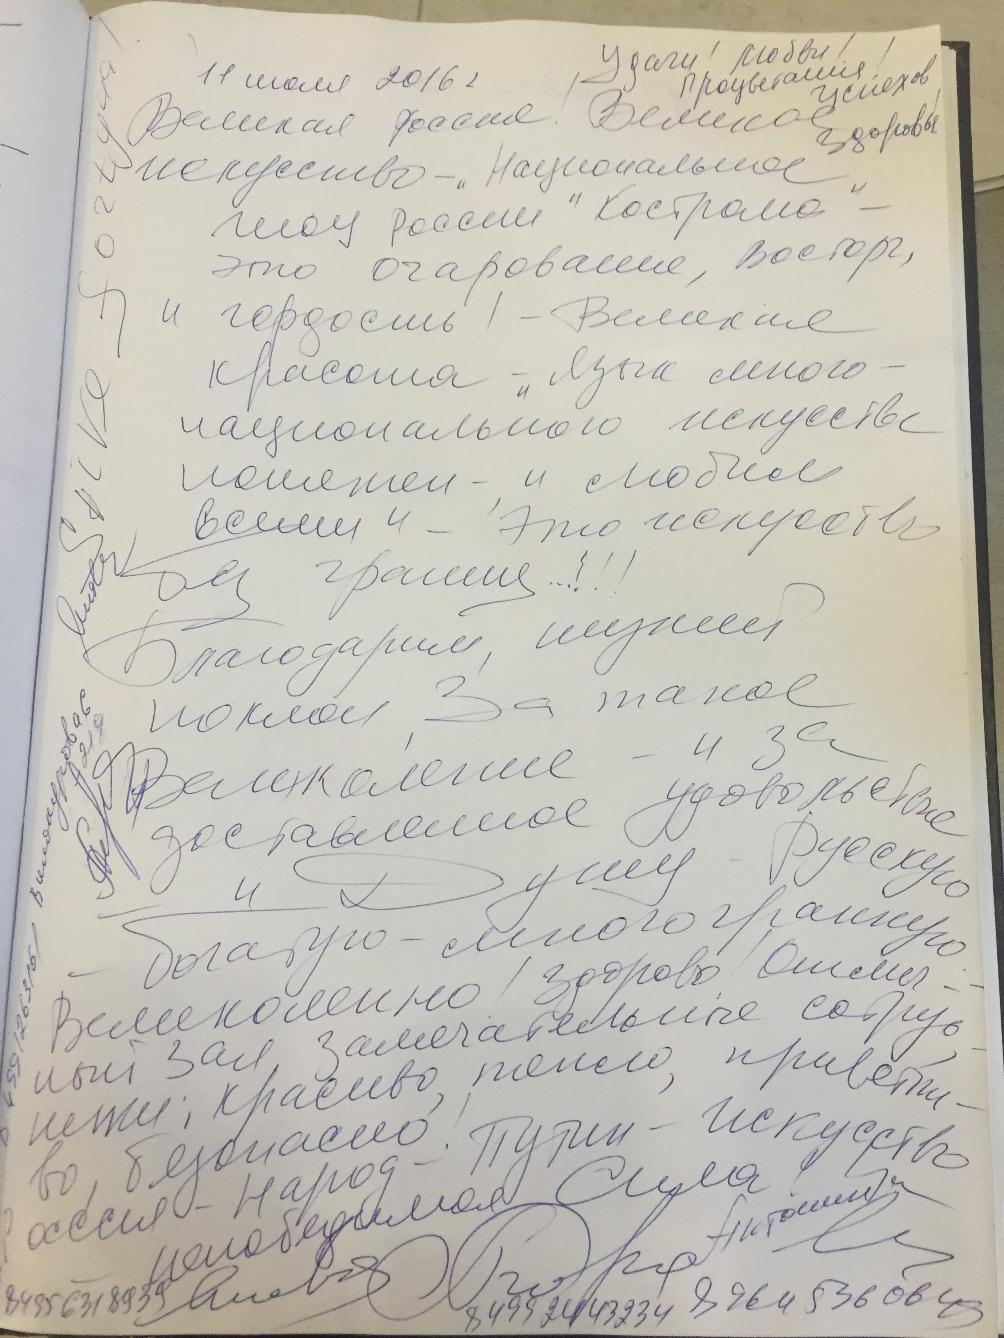 11 июля 2016 г
Удачи! Любви!
Процветания!
Успехов
Здоровья!
Великая Россия! Великое
искусство – „Национальное
шоу России "Кострома" –
это очарование, восторг,
и гордость! – Великая
красота – „Язык много-
национального искусства
понятен – и любим
всеми" – Это искусство
без границ...!!!
Благодарим, низкий
поклон за такое
Великолепие – и за
доставленное удовольствие
и Душу – Русскую
– богатую – многогранную.
Великолепно! Здорово! Отлич-
ный зал, замечательные сотруд-
ники; красиво, тепло, приветли-
во, безопасно!
оссия – Народ – Путин – искусство
непобедимая Сила!
84956318939
84992443234